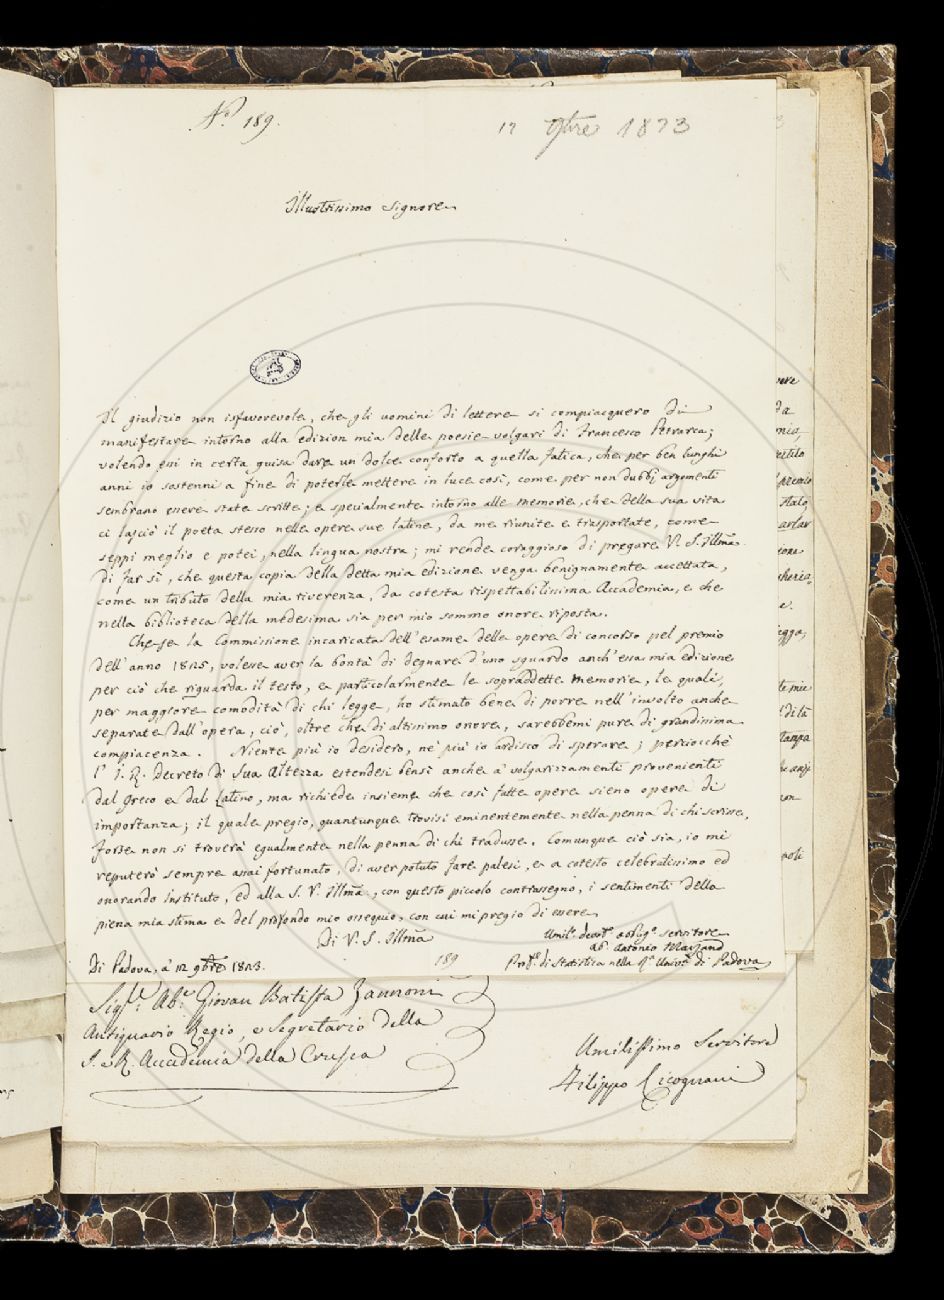 N.º 189.
12 9bre 1823
Illustrissimo Signore
Il giudizio non isfavorevole, che gli uomini di lettere si compiacquero di
manifestare intorno alla edizion mia delle poesie volgari di Francesco Petrarca;
volendo essi in certa guisa dare un dolce conforto a quella fatica, che per ben lunghi
anni io sostenni a fine di poterle mettere in luce così, come per non dubbj argomenti
sembrano essere state scritte; e specialmente intorno alle memorie, che della sua vita
ci lasciò il poeta stesso nelle opere sue latine, da me riunite e trasportate, come
seppi meglio e potei, nella lingua nostra; mi rende coraggioso di pregare V. S. Illma
di far sì, che questa copia della detta mia edizione venga benignamente accettata,
come un tributo della mia riverenza, da cotesta rispettabilissima Accademia, e che
nella biblioteca della medesima sia per mio sommo onore riposta.
Che se la Commissione incaricata dell'esame delle opere di concorso pel premio
dell'anno 1825, volesse aver la bontà di degnare d'uno sguardo anch'essa mia edizione
per ciò che riguarda il testo, e particolarmente le sopraddette memorie, le quali,
per maggiore comodità di chi legge, ho stimato bene di porre nell'involto anche
separate dall'opera, ciò, oltre che di altissimo onore, sarebbemi pure di grandissima
compiacenza. Niente più io desidero, nè più io ardisco di sperare; perciocchè
l' I. R. Decreto di Sua Altezza estendesi bensì anche a' volgarizzamenti provenienti
dal Greco e dal Latino, ma richiede insieme che così fatte opere sieno opere di
importanza; il quale pregio, quantunque trovisi eminentemente nella penna di chi scrisse,
forse non si troverà egualmente nella penna di chi tradusse. Comunque ciò sia, io mi
reputerò sempre assai fortunato, di aver potuto fare palesi, e a cotesto celebratissimo ed
onorando Instituto, ed alla S. V. Illma, con questo piccolo contrassegno, i sentimenti della
piena mia stima e del profondo mio ossequio, con cui mi pregio di essere
Di V. S. Illma
Umil.º devot.º obblig.º servitore
ab. Antonio Marsand
Di Padova, a' 12 9bre 1823.
189
Prof.e di Statistica nella R.a Univ.tà di Padova
Sig.r Ab.e Giovan Batista Zannoni
Antiquario Regio, e Segretario della
I. e R. Accademia della Crusca
Umilissimo Servitore
Filippo Cicognani